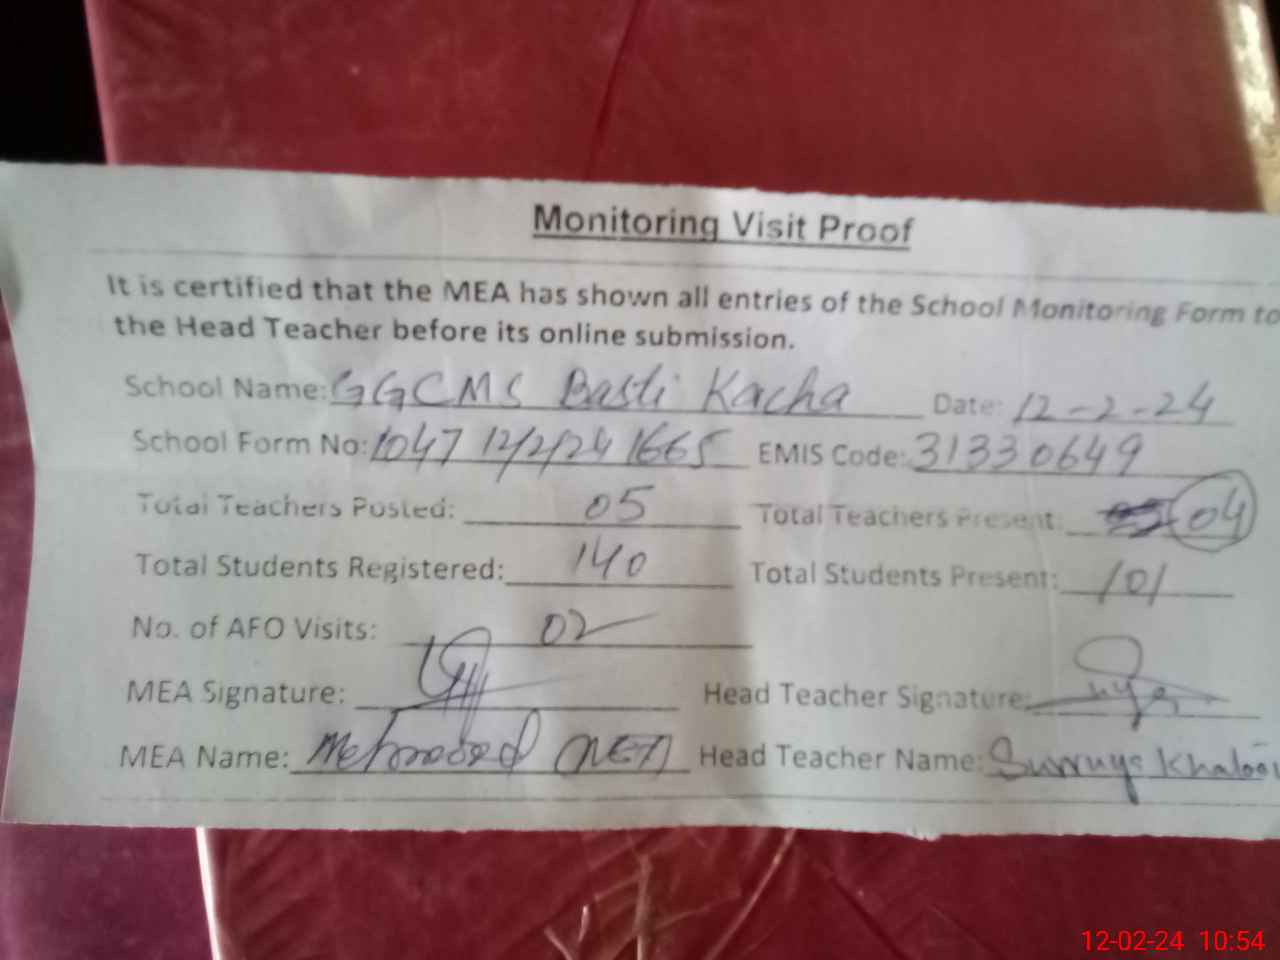 Monitoring Visit Proof
It is certified that the MEA has shown all entries of the School Monitoring Form to
the Head Teacher before its online submission.
School Name: GGCMS Basti Kacha Date: 12-2-24
School Form No: 1047 12/2/24 1665 EMIS Code: 31330649
Total Teachers Posted: 05 Total Teachers Present: 04
Total Students Registered: 140 Total Students Present: 101
No. of AFO Visits: 02
MEA Signature: Head Teacher Signature:
MEA Name: Head Teacher Name:
12-02-24 10:54